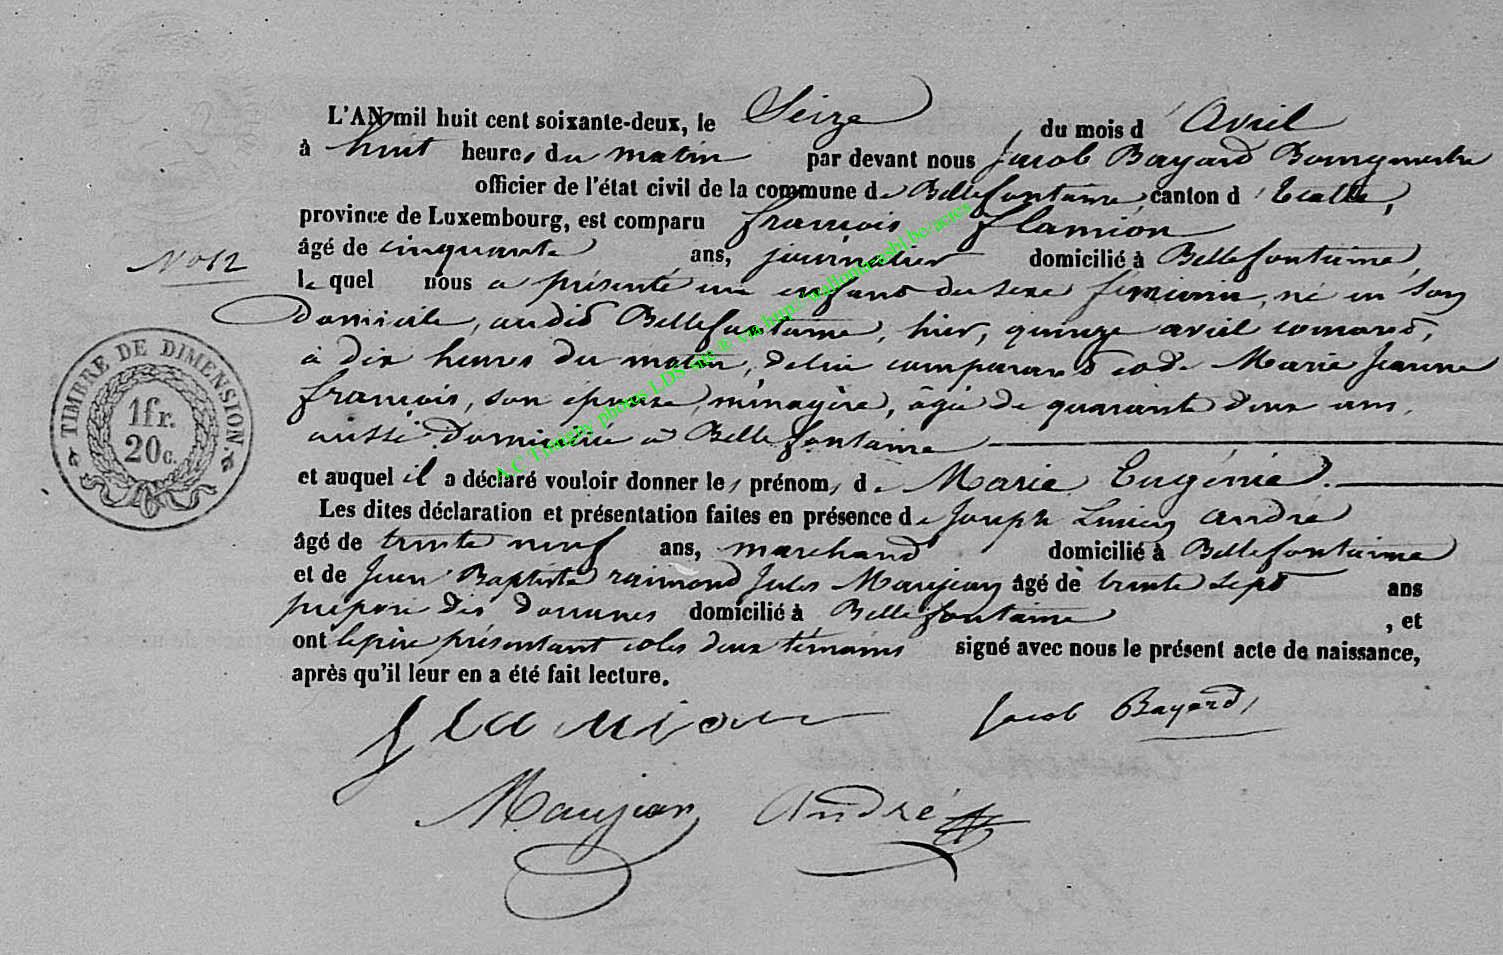 L'AN mil huit cent soixante-deux, le Seize du mois d'Avril
à huit heures du matin par devant nous Jacob Bayard Bourgmestre
officier de l'état civil de la commune de Bellefontaine, canton d'Etalle,
province de Luxembourg, est comparu françois flamion
N° 12
âgé de cinquante ans, journalier domicilié à Bellefontaine,
lequel nous a présenté un enfant du sexe feminin, né en son
Domicile, audit Bellefontaine, hier, quinze avril courant,
à dix heures du matin, de lui comparant et de Marie Jeanne
françois, son épouse, ménagère, âgée de quarante deux ans,
aussi domiciliée à Bellefontaine
et auquel il a déclaré vouloir donner les prénoms de Marie Eugénie.
Les dites déclaration et présentation faites en présence de Joseph Lucien André
âgé de trente neuf ans, marchand domicilié à Bellefontaine
et de Jean Baptiste raimond Jules Maujean âgé de trente sept ans
préposé des douanes domicilié à Bellefontaine, et
ont le père présentant et les deux témoins signé avec nous le présent acte de naissance,
après qu'il leur en a été fait lecture.
flamion Jacob Bayard
Maujean André
TIMBRE DE DIMENSION
1fr.
20c.